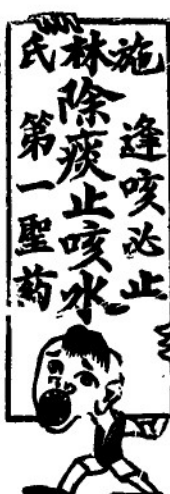 施林氏
逢咳必止
除痰止咳水
第一聖葯